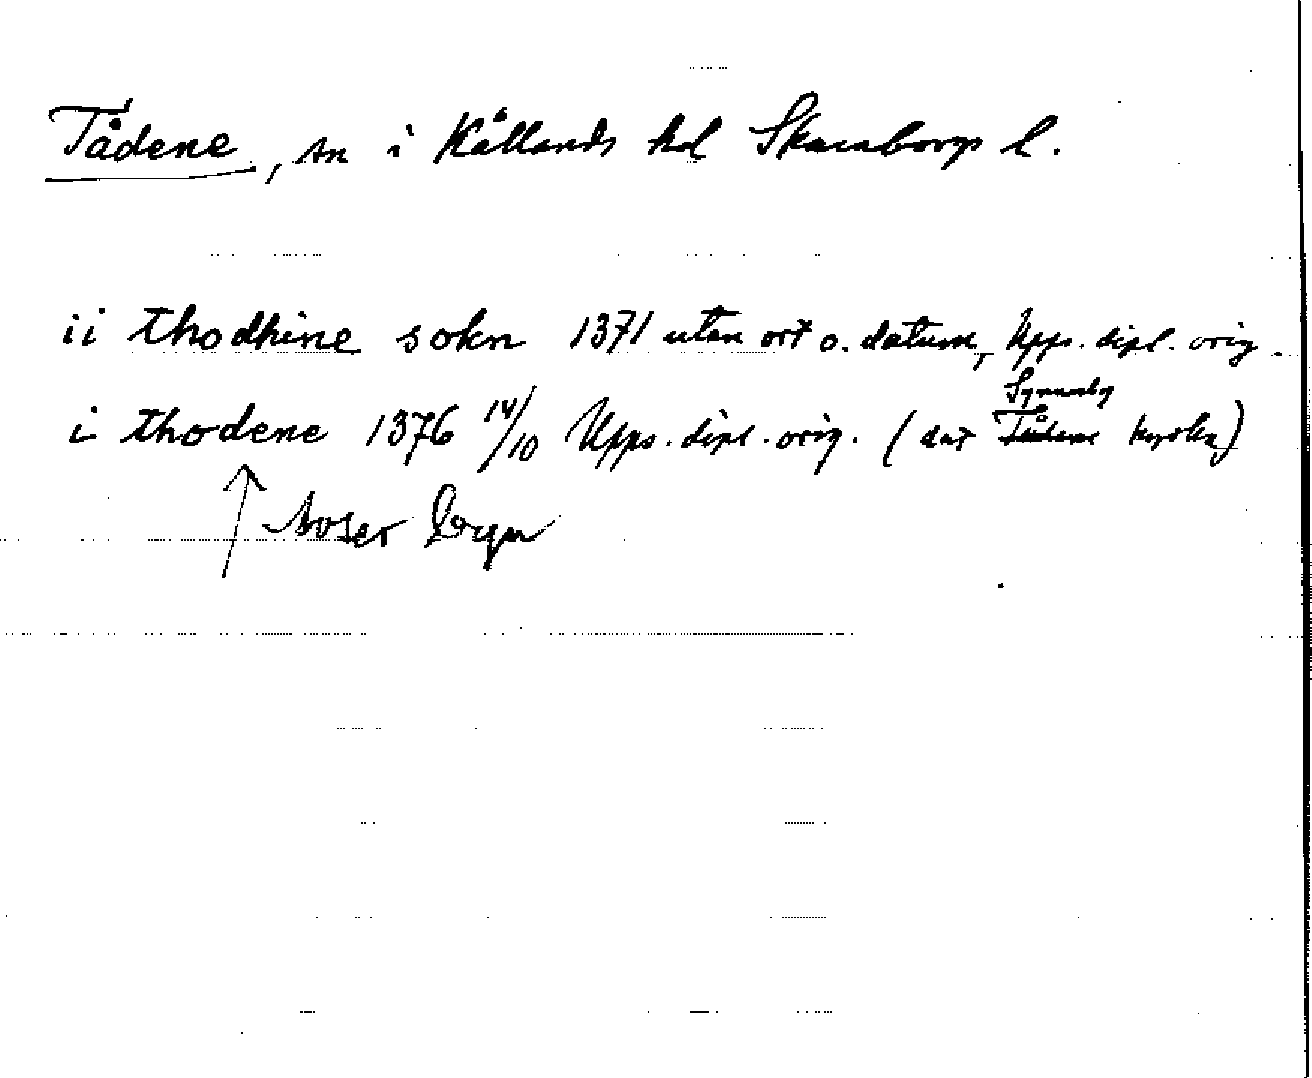 Tådene, sn i Kållands hd Skaraborgs l.
ii thodhine sokn 1371 utan ort o. datum, Upps. dipl. orig.
Synnerby
i thodene 1376 14/10 Upps. dipl. orig. (dat Tådene kyrka)
avser byn